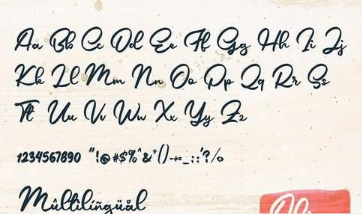 Aa Bb Cc Dd Ee Ff Gg Hh Ii Jj
Kk Ll Mm Nn Oo Pp Qq Rr Ss
Tt Uu Vv Ww Xx Yy Zz
1234567890 "!@#$%^&*()-+=_:;'?/
Mûltilíñgüàl